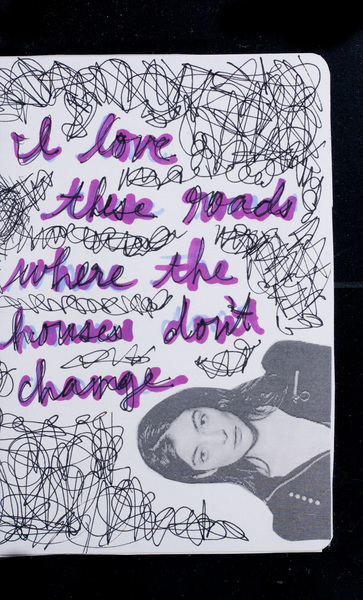 i love
these roads
where the
houses don't
change